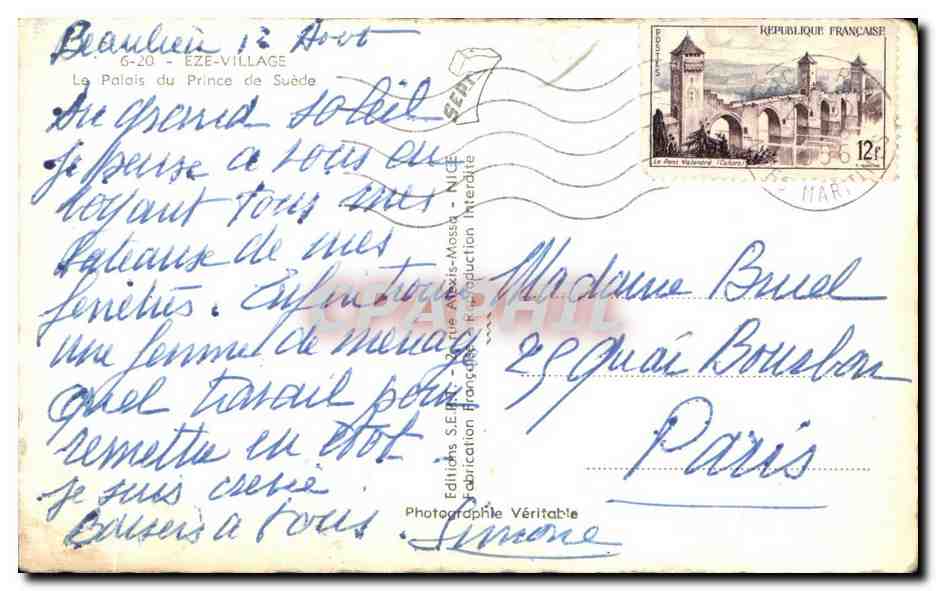 Beaulieu 12 Août
6-20 - EZE-VILLAGE
Le Palais du Prince de Suède
Au grand soleil
je pense a vous en
voyant tous mes
bateaux de mes
fenêtres. Enfin trouvé
une femme de ménage
quel travail pour
remettre en état.
je suis crevée
Baisers a tous.
Simone
SEPT
Editions S.E.P.T. - 2, rue Alexis-Mossa - NICE
Fabrication Française - Reproduction Interdite
Photographie Véritable
POSTES
REPUBLIQUE FRANÇAISE
Le Pont Valentré (Cahors)
12f
MARTI
Madame Bruel
25 Quai Bourbon
Paris
CPAPHIL